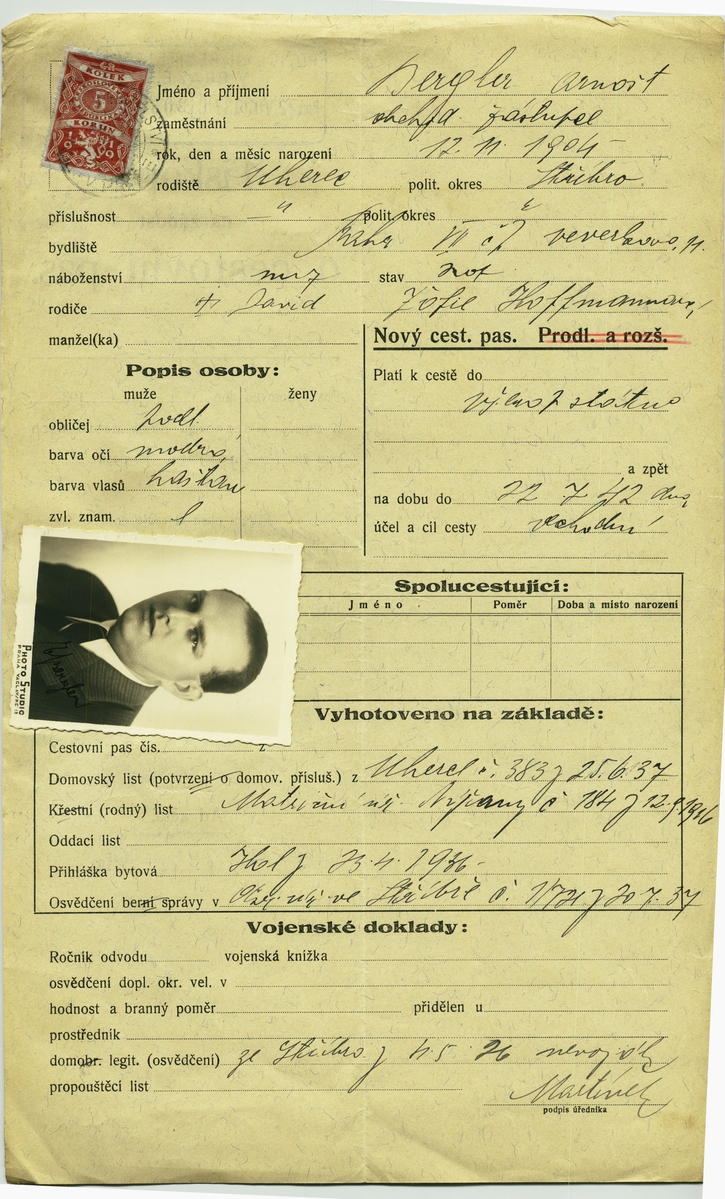 KOLEK
5
KORUN
Jméno a příjmení Bergler Arnošt
zaměstnání obchod. zástupce
rok, den a měsíc narození 12. 11. 1904
rodiště Uherce polit. okres Stříbro
příslušnost — " polit. okres "
bydliště Praha VII čj veverkova
náboženství stav
rodiče + David Žofie Hoffmannová
manžel(ka)
Nový cest. pas. Prodl. a rozš.
Popis osoby:
muže ženy
obličej podl.
barva očí modré
barva vlasů kaštan
zvl. znam.
Platí k cestě do
a zpět
na dobu do 22 7 42
účel a cíl cesty obchodní
PHOTO STUDIO
Spolucestující:
Jméno Poměr Doba a místo narození
Vyhotoveno na základě:
Cestovní pas čís. z
Domovský list (potvrzení o domov. přísluš.) z Uherce č. 383 z 25. 6. 37
Křestní (rodný) list Matriční úř. Nýřany č 184 z 12. 9 1916
Oddací list
Přihláška bytová z 23. 4. 1936
Osvědčení berní správy v úř. ve Stříbře č. z 20. 7. 37
Vojenské doklady:
Ročník odvodu vojenská knížka
osvědčení dopl. okr. vel. v
hodnost a branný poměr přidělen u
prostředník
domobr. legit. (osvědčení) ze Stříbro z 5 26 nevoják
propouštěcí list
Martínek
podpis úředníka